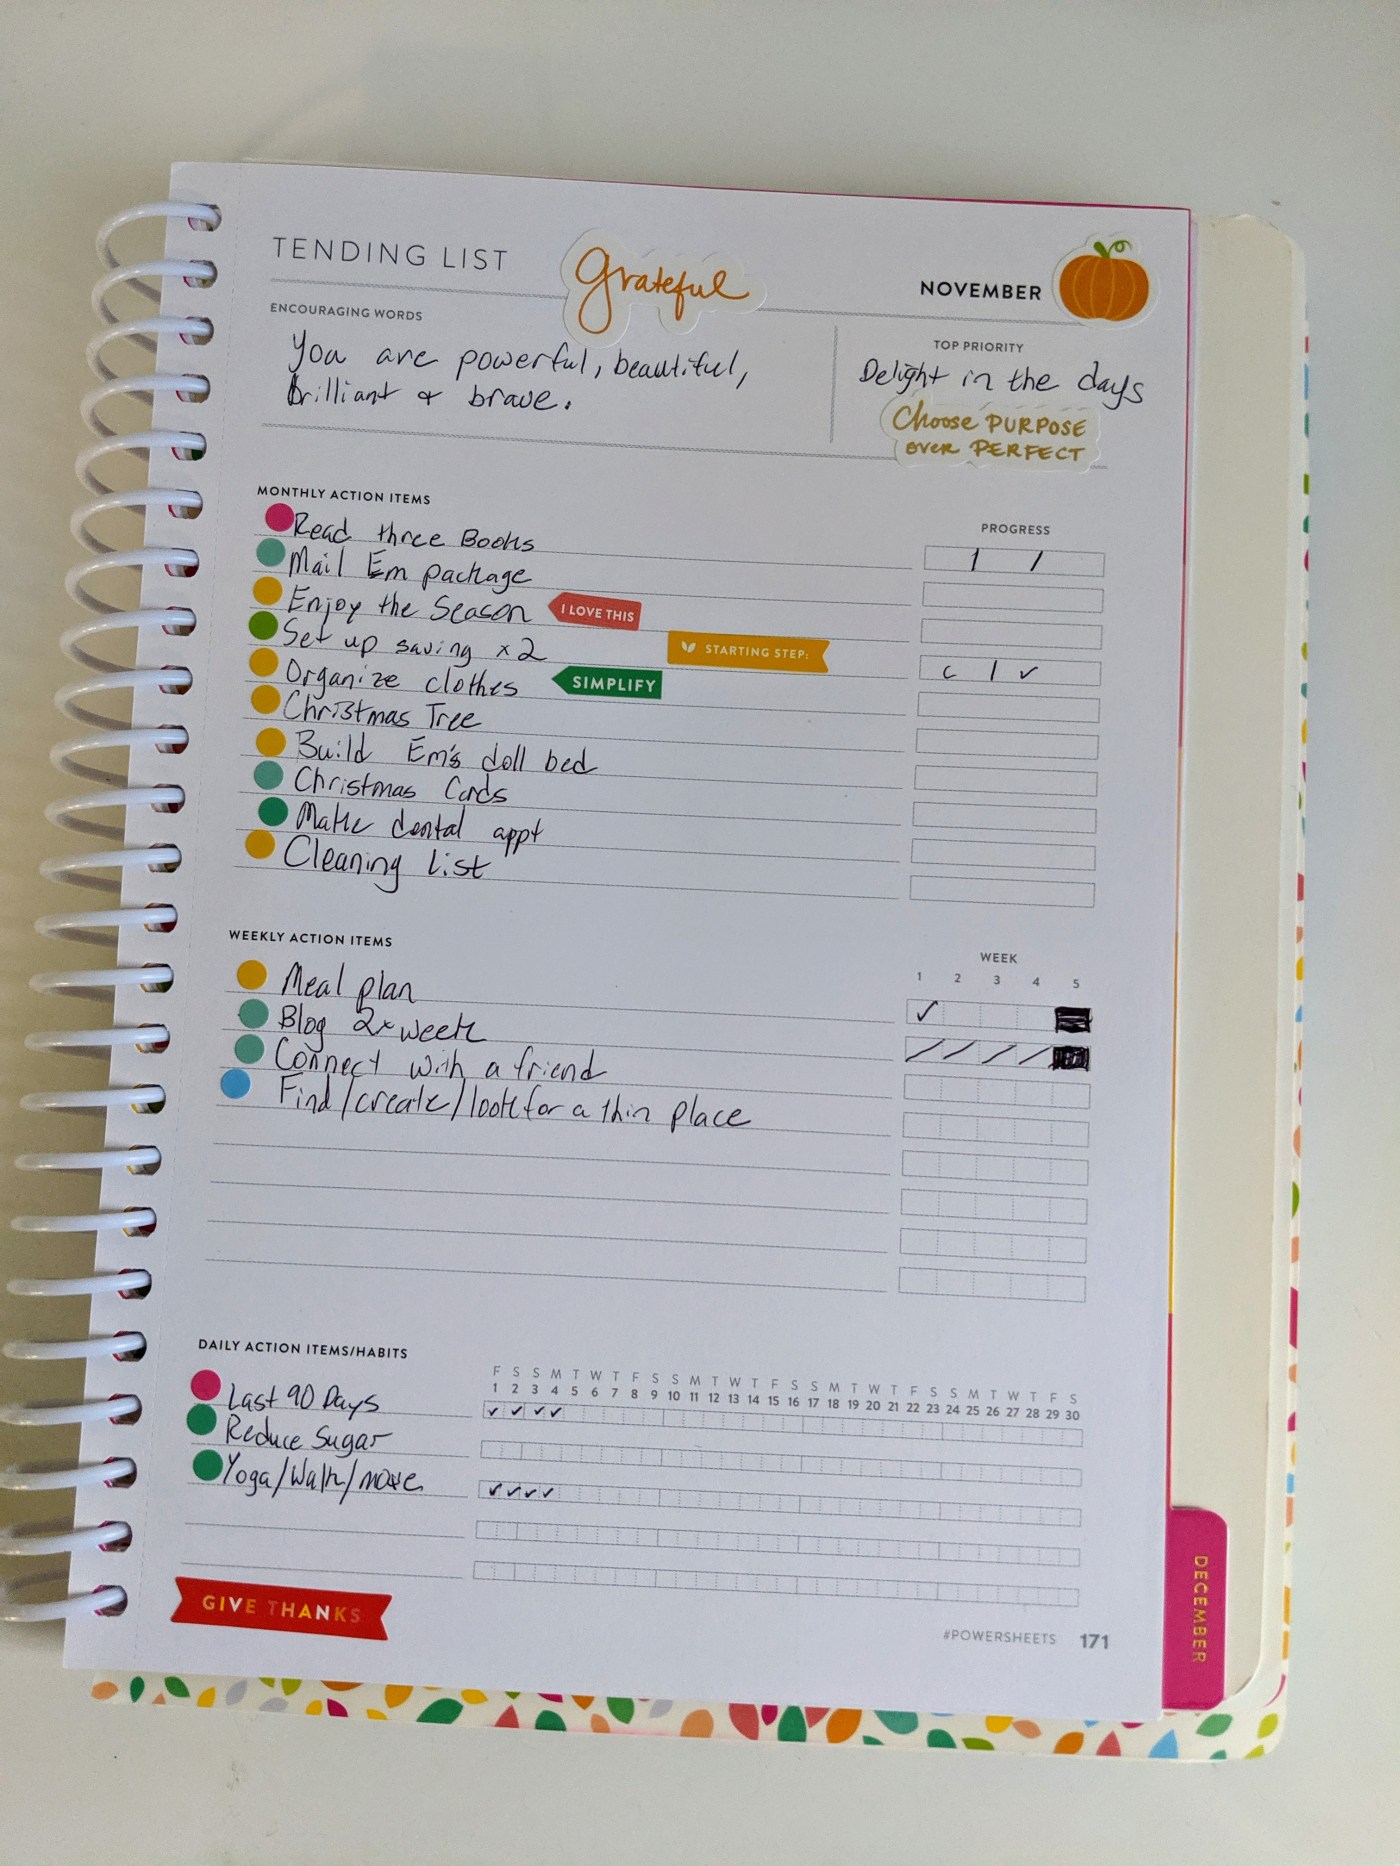 TENDING LIST
grateful
NOVEMBER
ENCOURAGING WORDS
You are powerful, beautiful,
brilliant & brave.
TOP PRIORITY
Delight in the days
Choose PURPOSE
over PERFECT
MONTHLY ACTION ITEMS
PROGRESS
Read three Books
Mail Em package
Enjoy the Season I LOVE THIS
Set up saving x2 STARTING STEP:
Organize clothes SIMPLIFY
Christmas Tree
Build Em's doll bed
Christmas Cards
Make dental appt
Cleaning List
WEEKLY ACTION ITEMS
WEEK
1 2 3 4 5
Meal plan
Blog 2x week
Connect with a friend
Find/create/look for a thin place
DAILY ACTION ITEMS/HABITS
F S S M T W T F S S M T W T F S S M T W T F S S M T W T F S
1 2 3 4 5 6 7 8 9 10 11 12 13 14 15 16 17 18 19 20 21 22 23 24 25 26 27 28 29 30
Last 90 Days
Reduce Sugar
Yoga/Walk/move
GIVE THANKS
#POWERSHEETS 171
DECEMBER